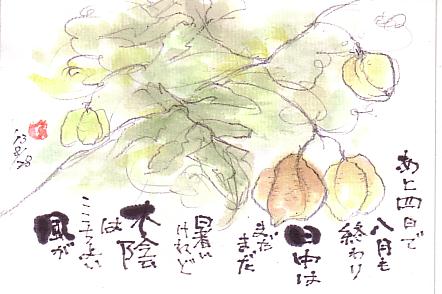 あと四日で
八月も
終わり
日中は
まだ
まだ
暑い
けれど
木陰
は
ここちよい
風が
'13.8.28